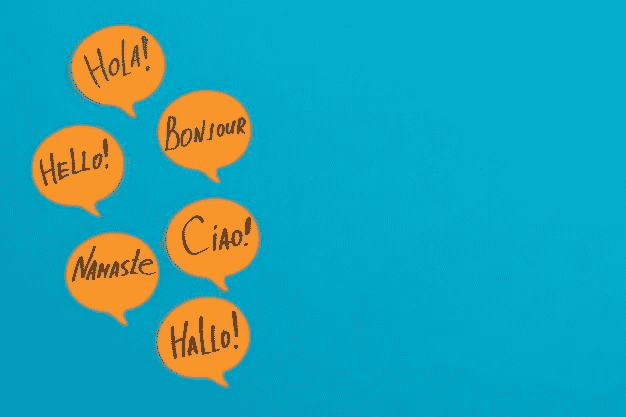 Hola!
Bonjour
Hello!
Ciao!
Namaste
Hallo!